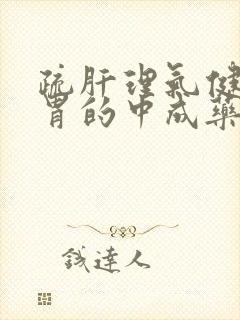 疏肝理氣健
胃的中成藥
錢達人